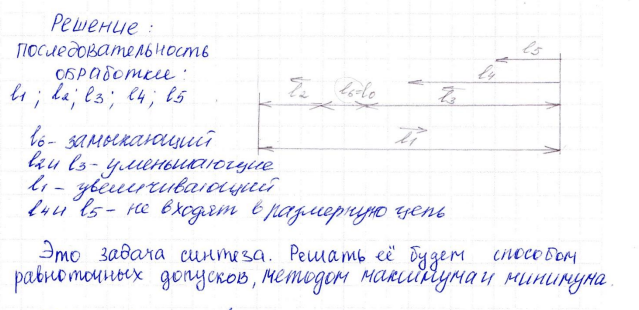 Решение:
последовательность
обработки:
l1; l2; l3; l4; l5
l5
l4
l2 l6=l0 l3
l1
l6 - замыкающий
l2 и l3 - уменьшающие
l1 - увеличивающий
l4 и l5 - не входят в размерную цепь
Это задача синтеза. Решать её будем способом
равноточных допусков, методом максимума и минимума.